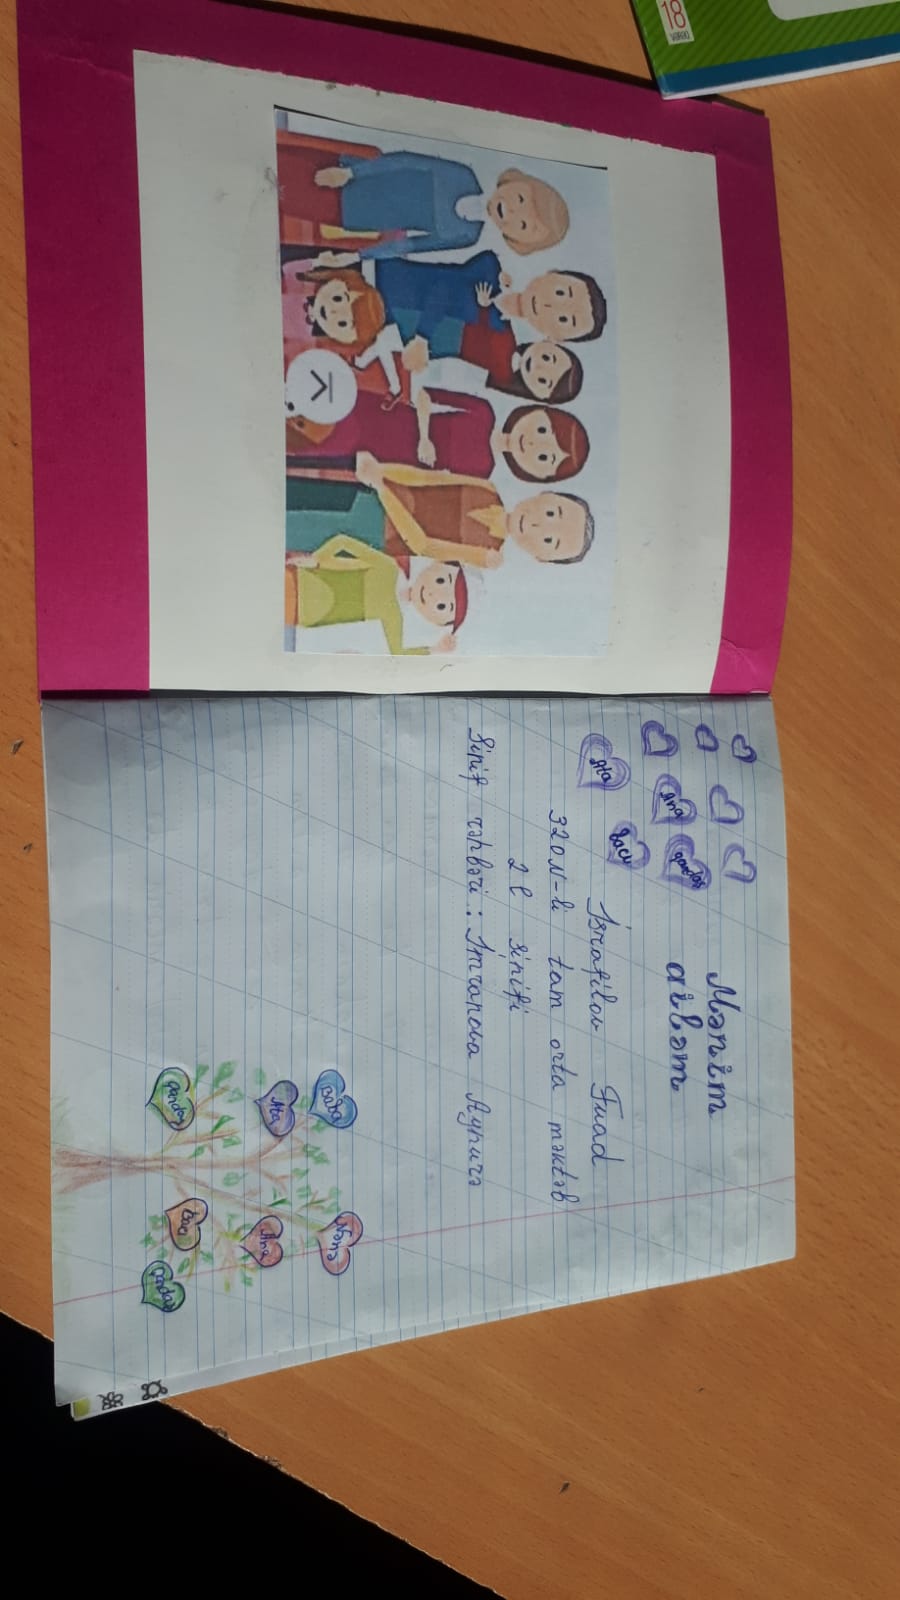 18
vərəq
Mənim
ailəm
Ata
Ana
qardaş
Bacı
İsrafilov Fuad
320 N-li tam orta məktəb
2 l sinifi
Sinif rəhbəri:
Baba
Nənə
Ata
Ana
qardaş
Bacı
Qardaş